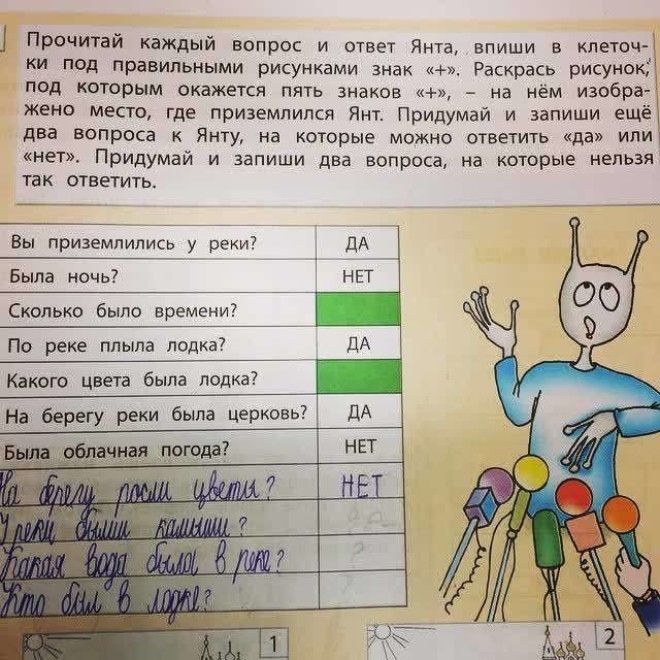 Прочитай каждый вопрос и ответ Янта, впиши в клеточ-
ки под правильными рисунками знак «+». Раскрась рисунок,
под которым окажется пять знаков «+», – на нём изобра-
жено место, где приземлился Янт. Придумай и запиши ещё
два вопроса к Янту, на которые можно ответить «да» или
«нет». Придумай и запиши два вопроса, на которые нельзя
так ответить.
Вы приземлились у реки? ДА
Была ночь? НЕТ
Сколько было времени?
По реке плыла лодка? ДА
Какого цвета была лодка?
На берегу реки была церковь? ДА
Была облачная погода? НЕТ
На берегу росли цветы? НЕТ
У реки были камыши?
Какая вода была в реке? ?
Кто был в лодке?
1 2